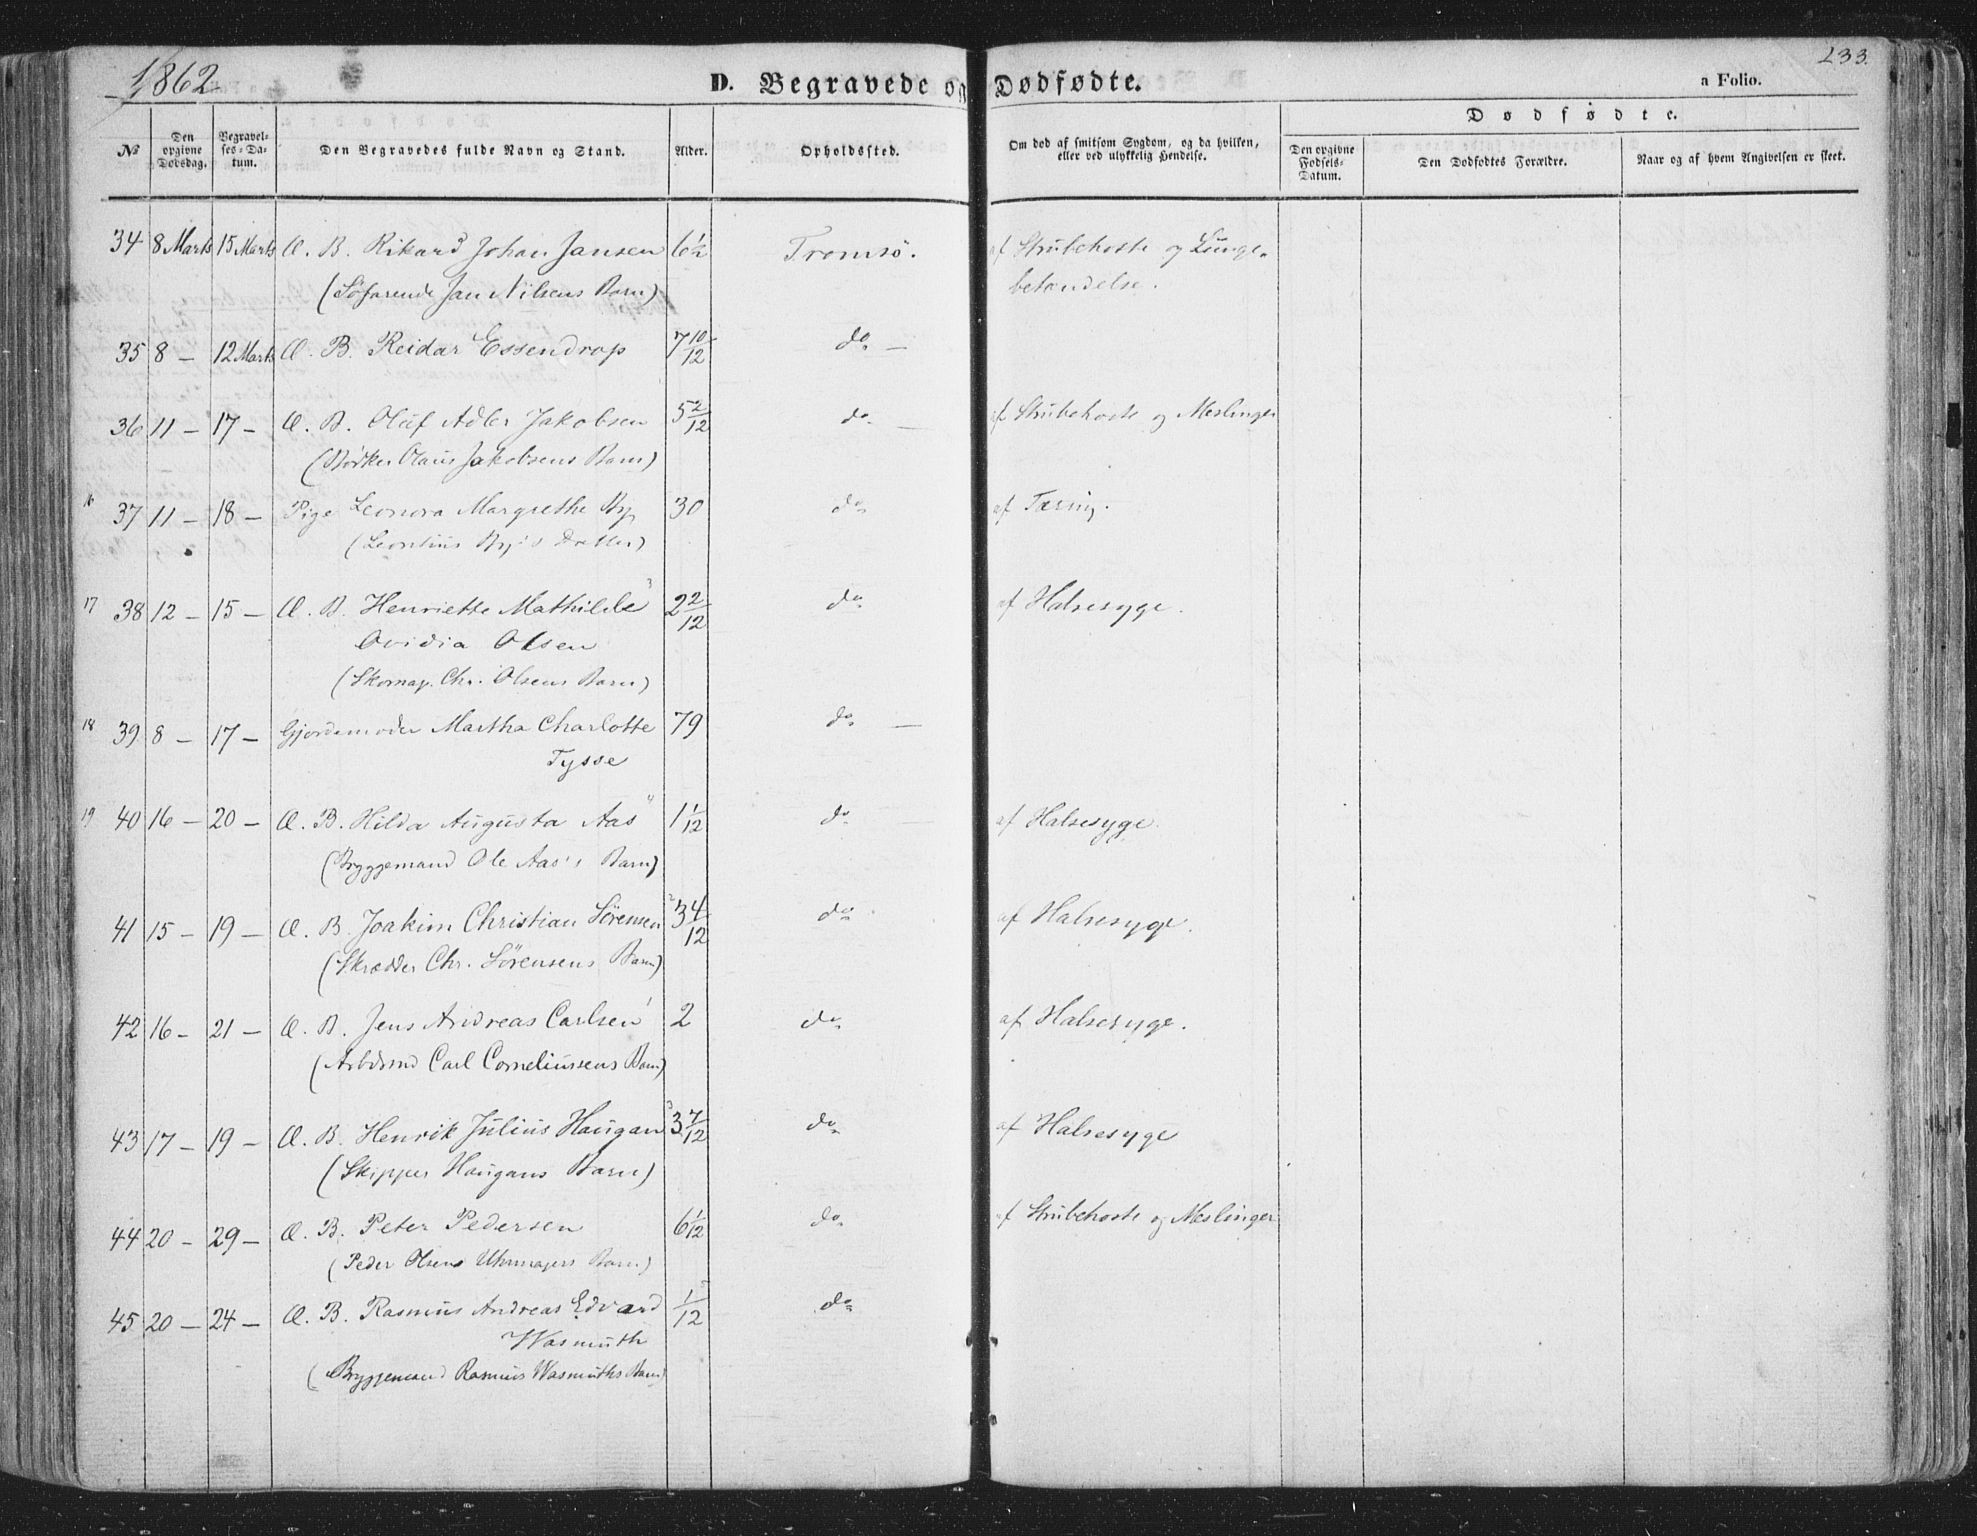 1862
D. Begravede og Dødfødte.
233.
a Folio.
No
Den opgivne Dødsdag.
Begravelses-Datum.
Den Begravedes fulde Navn og Stand.
Alder.
Opholdssted.
Om død af smitsom Sygdom, og da hvilken, eller ved ulykkelig Hendelse.
Dødfødte.
Den opgivne Fødsels-Datum.
Den Dødfødtes Forældre.
Naar og af hvem Angivelsen er skeet.
34 8 Marts 15 Marts Æ. B. Rikard Johan Jansen 6 1/2 Tromsö. af Strubehoste og Lunge-
(Söfarende Jan Nilsens Barn) betændelse.
35 8 — 12 Marts Æ. B. Reidar Essendrop 7 10/12 do —
36 11 — 17 — Æ. B. Oluf Adler Jakobsen 5 2/12 do — af Strubehoste og Meslinger
(Bödker Olaus Jakobsens Barn)
16 37 11 — 18 — Pige Leonora Margrethe By 30 do af Tæring.
(Leontius By's Datter)
17 38 12 — 15 — Æ. B. Henriette Mathilde 3 2 2/12 do af Halsesyge.
Ovidia Olsen
(Skomag. Chr. Olsens Barn)
18 39 8 — 17 — Gjordemoder Martha Charlotte 79 do —
Tysse
19 40 16 — 20 — Æ. B. Hilda Augusta Aas 4 1 1/12 do — af Halsesyge.
(Bryggemand Ole Aas's Barn)
41 15 — 19 — Æ. B. Joakim Christian Sörensen 2 3 4/12 do af Halsesyge.
(Skrædder Chr. Sörensens Barn)
42 16 — 21 — Æ. B. Jens Andreas Carlsen 1 2 do af Halsesyge.
(Arbdsmd Carl Corneliussens Barn)
43 17 — 19 — Æ. B. Henrik Julius Haugan 3 3 7/12 do af Halsesyge
(Skipper Haugans Barn)
44 20 — 29 — Æ. B. Peter Pedersen 6 1/12 do af Strubehoste og Meslinger
(Peder Olsens Uhrmagers Barn)
45 20 — 24 — Æ. B. Rasmus Andreas Edvard 1/12 do
Wasmuth
(Bryggemand Rasmus Wasmuths Barn)